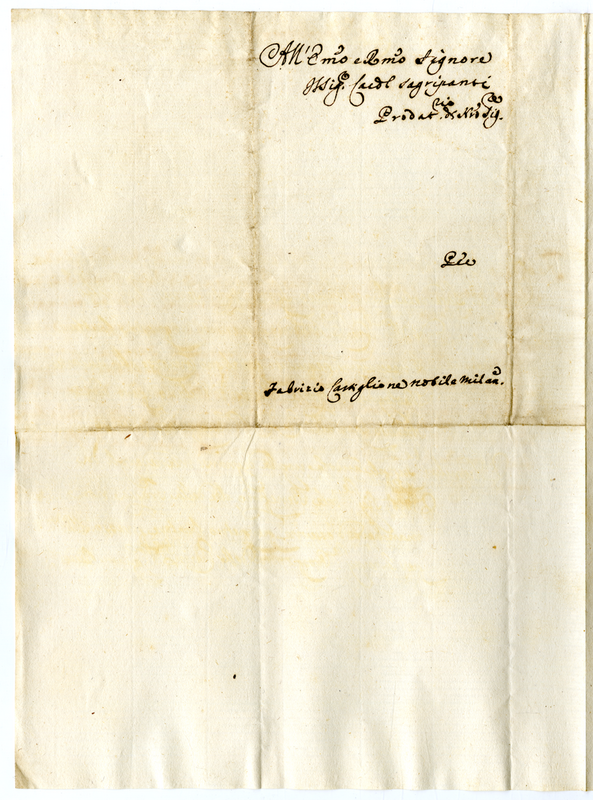 All'Em̃o e Rm̃o Signore
Il Sig.e Card.l Sagripanti
Prodat.rio di N'ro Sig.re
Per
Fabrizio Castiglione nobile Milan.e